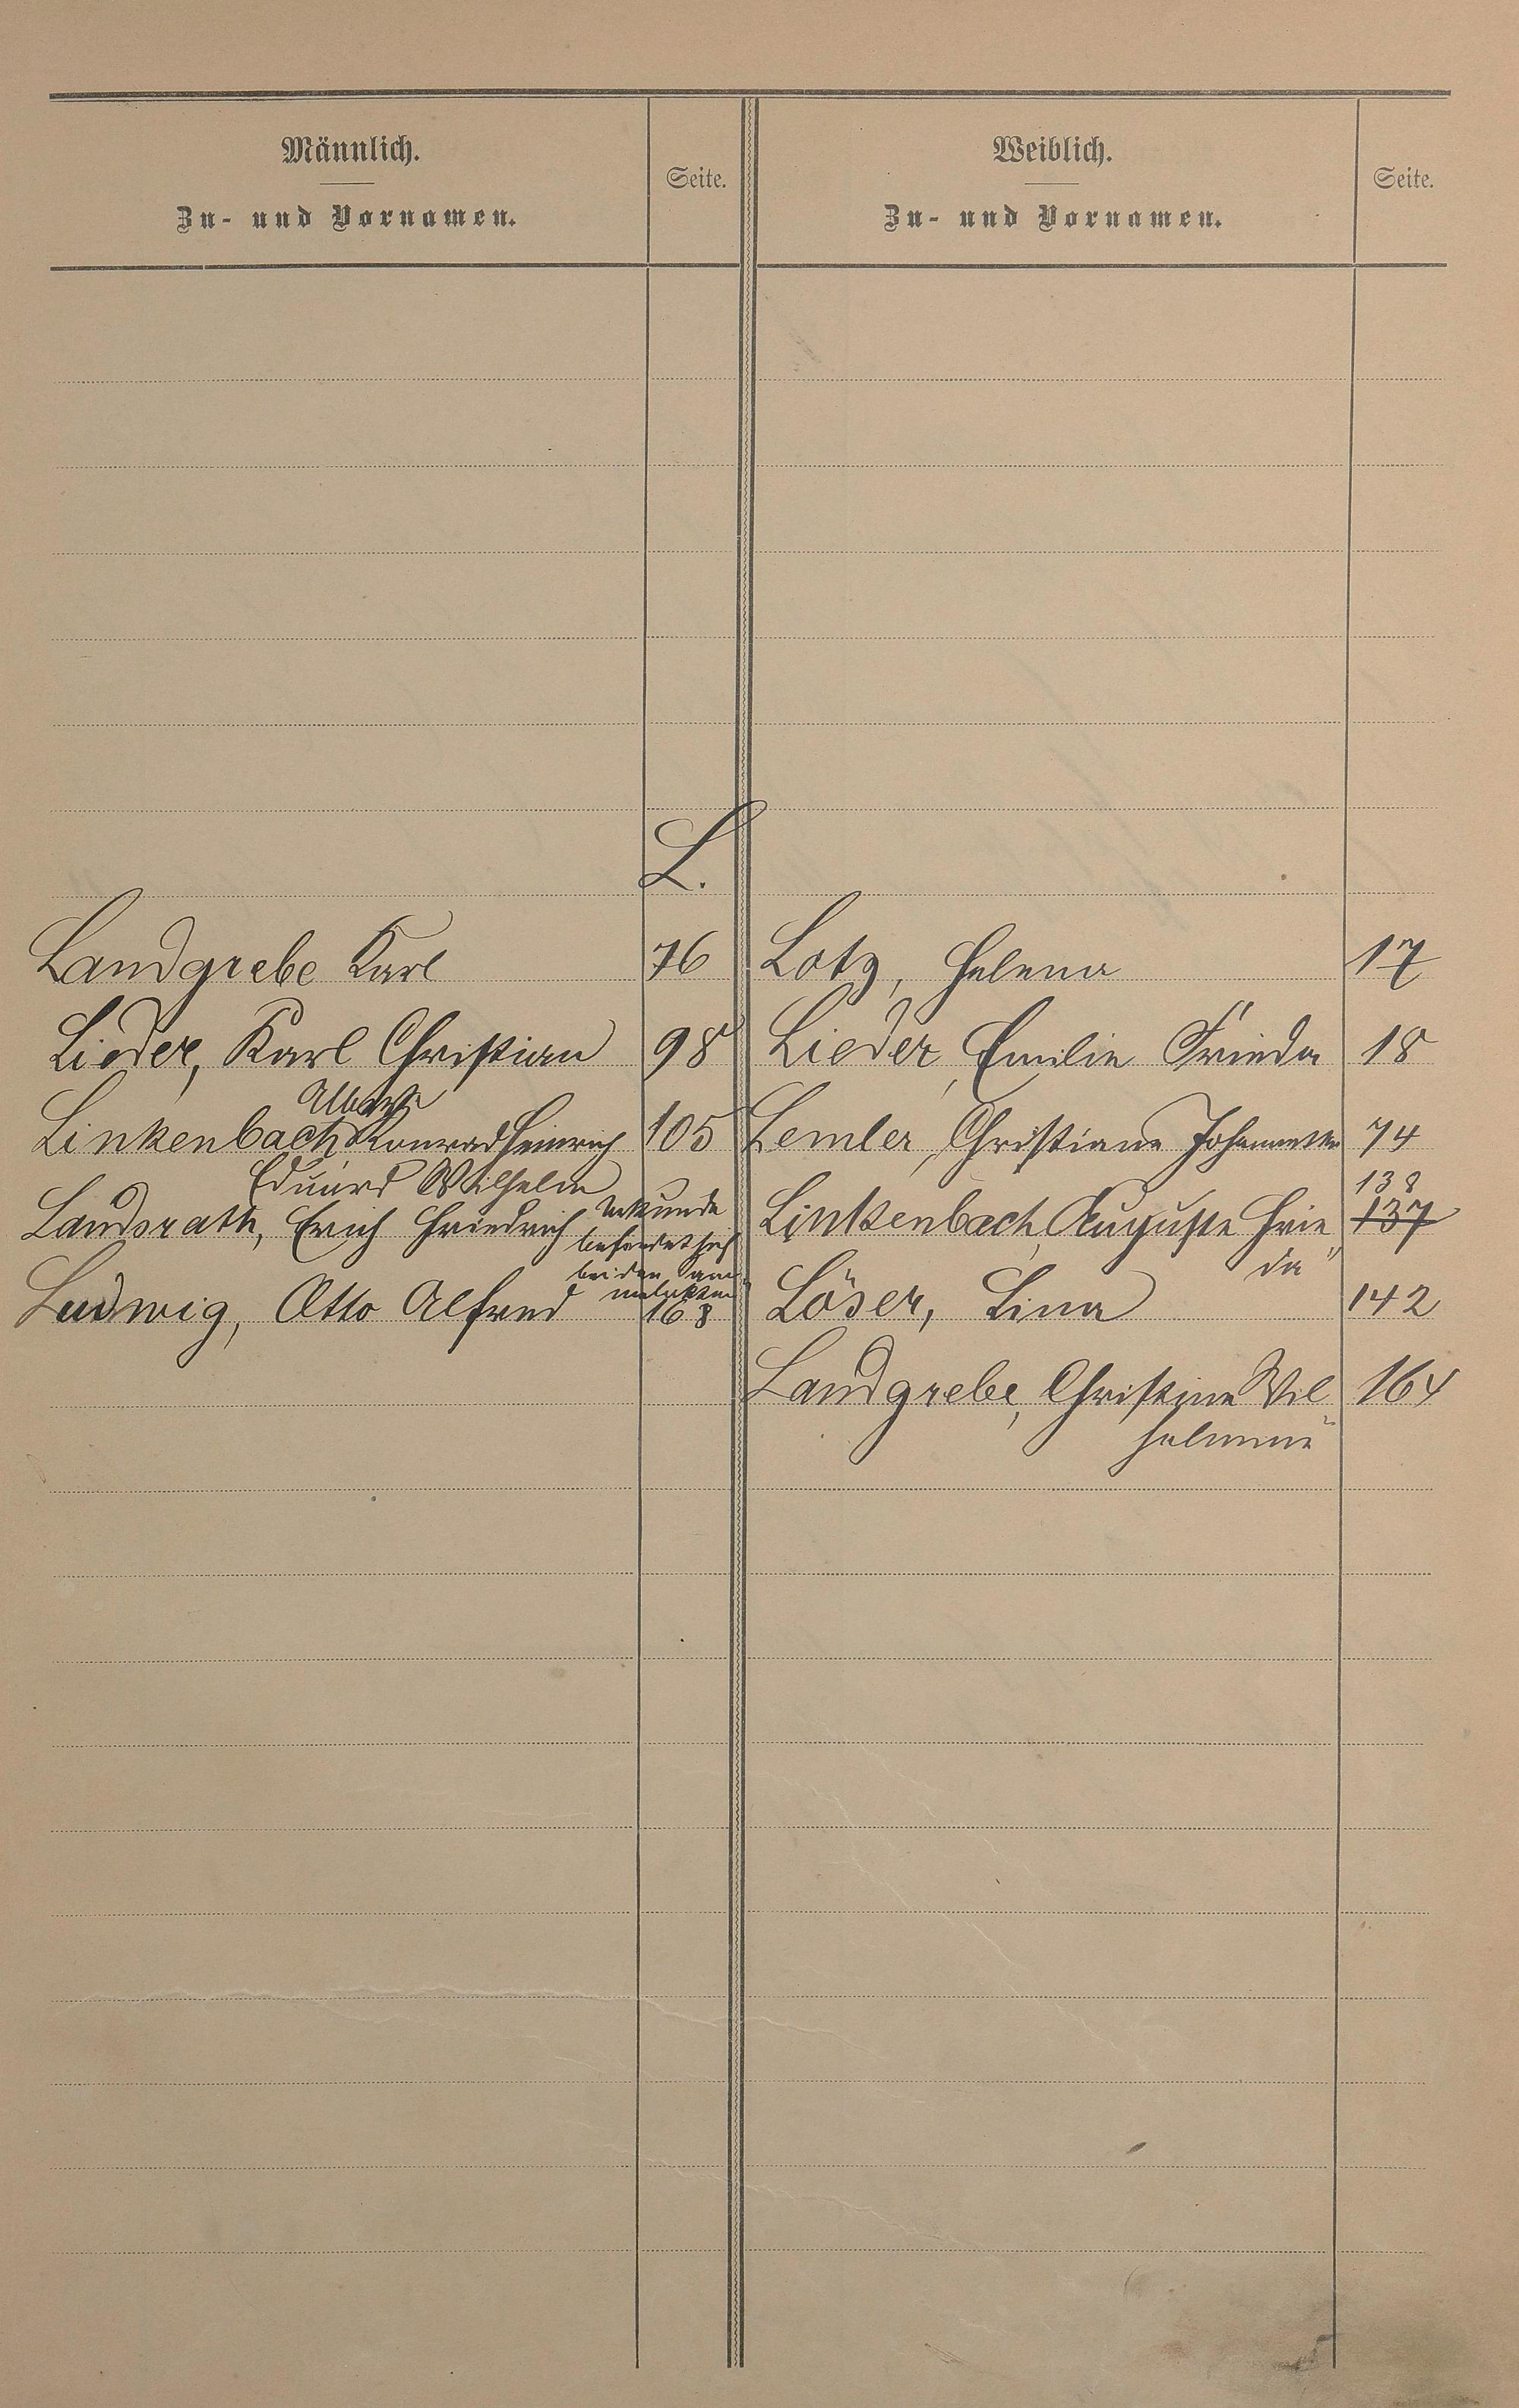 Männlich.
Zu- und Vornamen.
Seite.
Weiblich.
Zu- und Vornamen.
Seite.
L.
Landgrebe Karl 76
Lotz, Helena 17
Lieder, Karl Christian 98
Lieder, Emilie Frieda 18
Linkenbach Konrad Heinrich 105
Eduard Wilhelm
Lemler, Christiane Johannette 74
Landsrath, Erich Friedrich Urkunde
befindet sich
bei den
138
Linkenbach, Auguste Frie- 137
da
Ludwig, Otto Alfred 168
Löser, Lina 142
Landgrebe, Christine Wil- 164
helmine